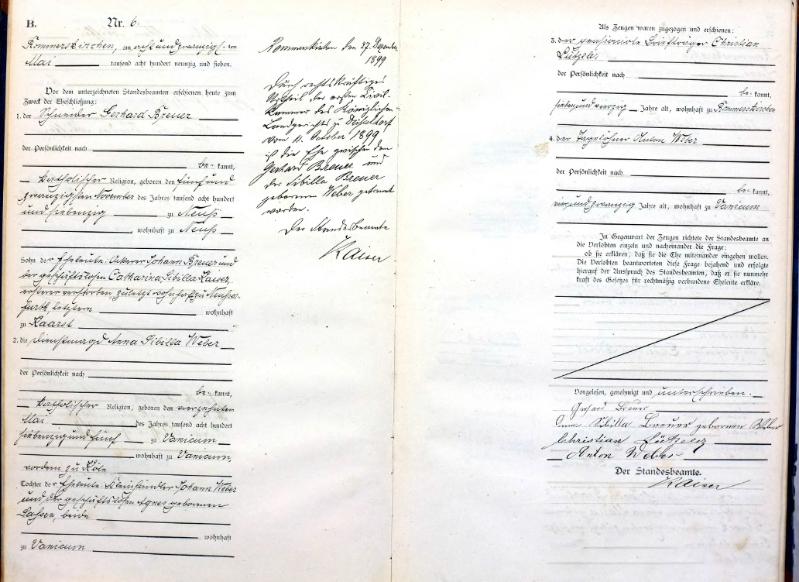 B. Nr. 6.
Rommerskirchen, am acht und zwanzig ten
Mai tausend acht hundert neunzig und sieben.
Vor dem unterzeichneten Standesbeamten erschienen heute zum
Zweck der Eheschließung:
1. der Schreiber Gerhard Breuer
der Persönlichkeit nach
be kannt,
katholischer Religion, geboren den fünf und
zwanzigsten November des Jahres tausend acht hundert
und siebenzig zu Neuss
wohnhaft zu Neuss
Sohn der Eheleute Ackerer Johann Breuer und
der geschäftslosen Catharina Sibilla Kaiser,
ersterer verstorben zuletzt wohnhaft zu
letztere wohnhaft
zu Kaarst
2. die Dienstmagd Anna Sibilla Weber
der Persönlichkeit nach
be kannt,
katholischer Religion, geboren den vierzehnten
Mai des Jahres tausend acht hundert
siebenzig und fünf zu Vanicum
wohnhaft zu Vanicum,
vordem zu Köln
Tochter der Eheleute Johann Weber
und der geschäftslosen Agnes geborenen
beide
wohnhaft
zu Vanicum
Rommerskirchen den 27. Dezember
1899
Durch rechtskräftiges
Urtheil der ersten Civil-
kammer des Königlichen
Landgerichts zu Düsseldorf
vom 11. October 1899
ist die Ehe zwischen den
Gerhard Breuer und
der Sibilla Breuer
geborenen Weber getrennt
worden.
Der Standesbeamte
Kaiser
Als Zeugen waren zugezogen und erschienen:
3. der pensionirte Briefträger Christian
Lützeler
der Persönlichkeit nach
be kannt,
sieben und vierzig Jahre alt, wohnhaft zu Rommerskirchen
4. der Tagelöhner Anton Weber
der Persönlichkeit nach
be kannt,
und zwanzig Jahre alt, wohnhaft zu Vanicum
In Gegenwart der Zeugen richtete der Standesbeamte an
die Verlobten einzeln und nacheinander die Frage:
ob sie erklären, daß sie die Ehe miteinander eingehen wollen.
Die Verlobten beantworteten diese Frage bejahend und erfolgte
hierauf der Ausspruch des Standesbeamten, daß er sie nunmehr
kraft des Gesetzes für rechtmäßig verbundene Eheleute erkläre.
Vorgelesen, genehmigt und unterschrieben.
Gerhard Breuer
Anna Sibilla Breuer geborener Weber
Christian Lützeler
Anton Weber
Der Standesbeamte.
Kaiser